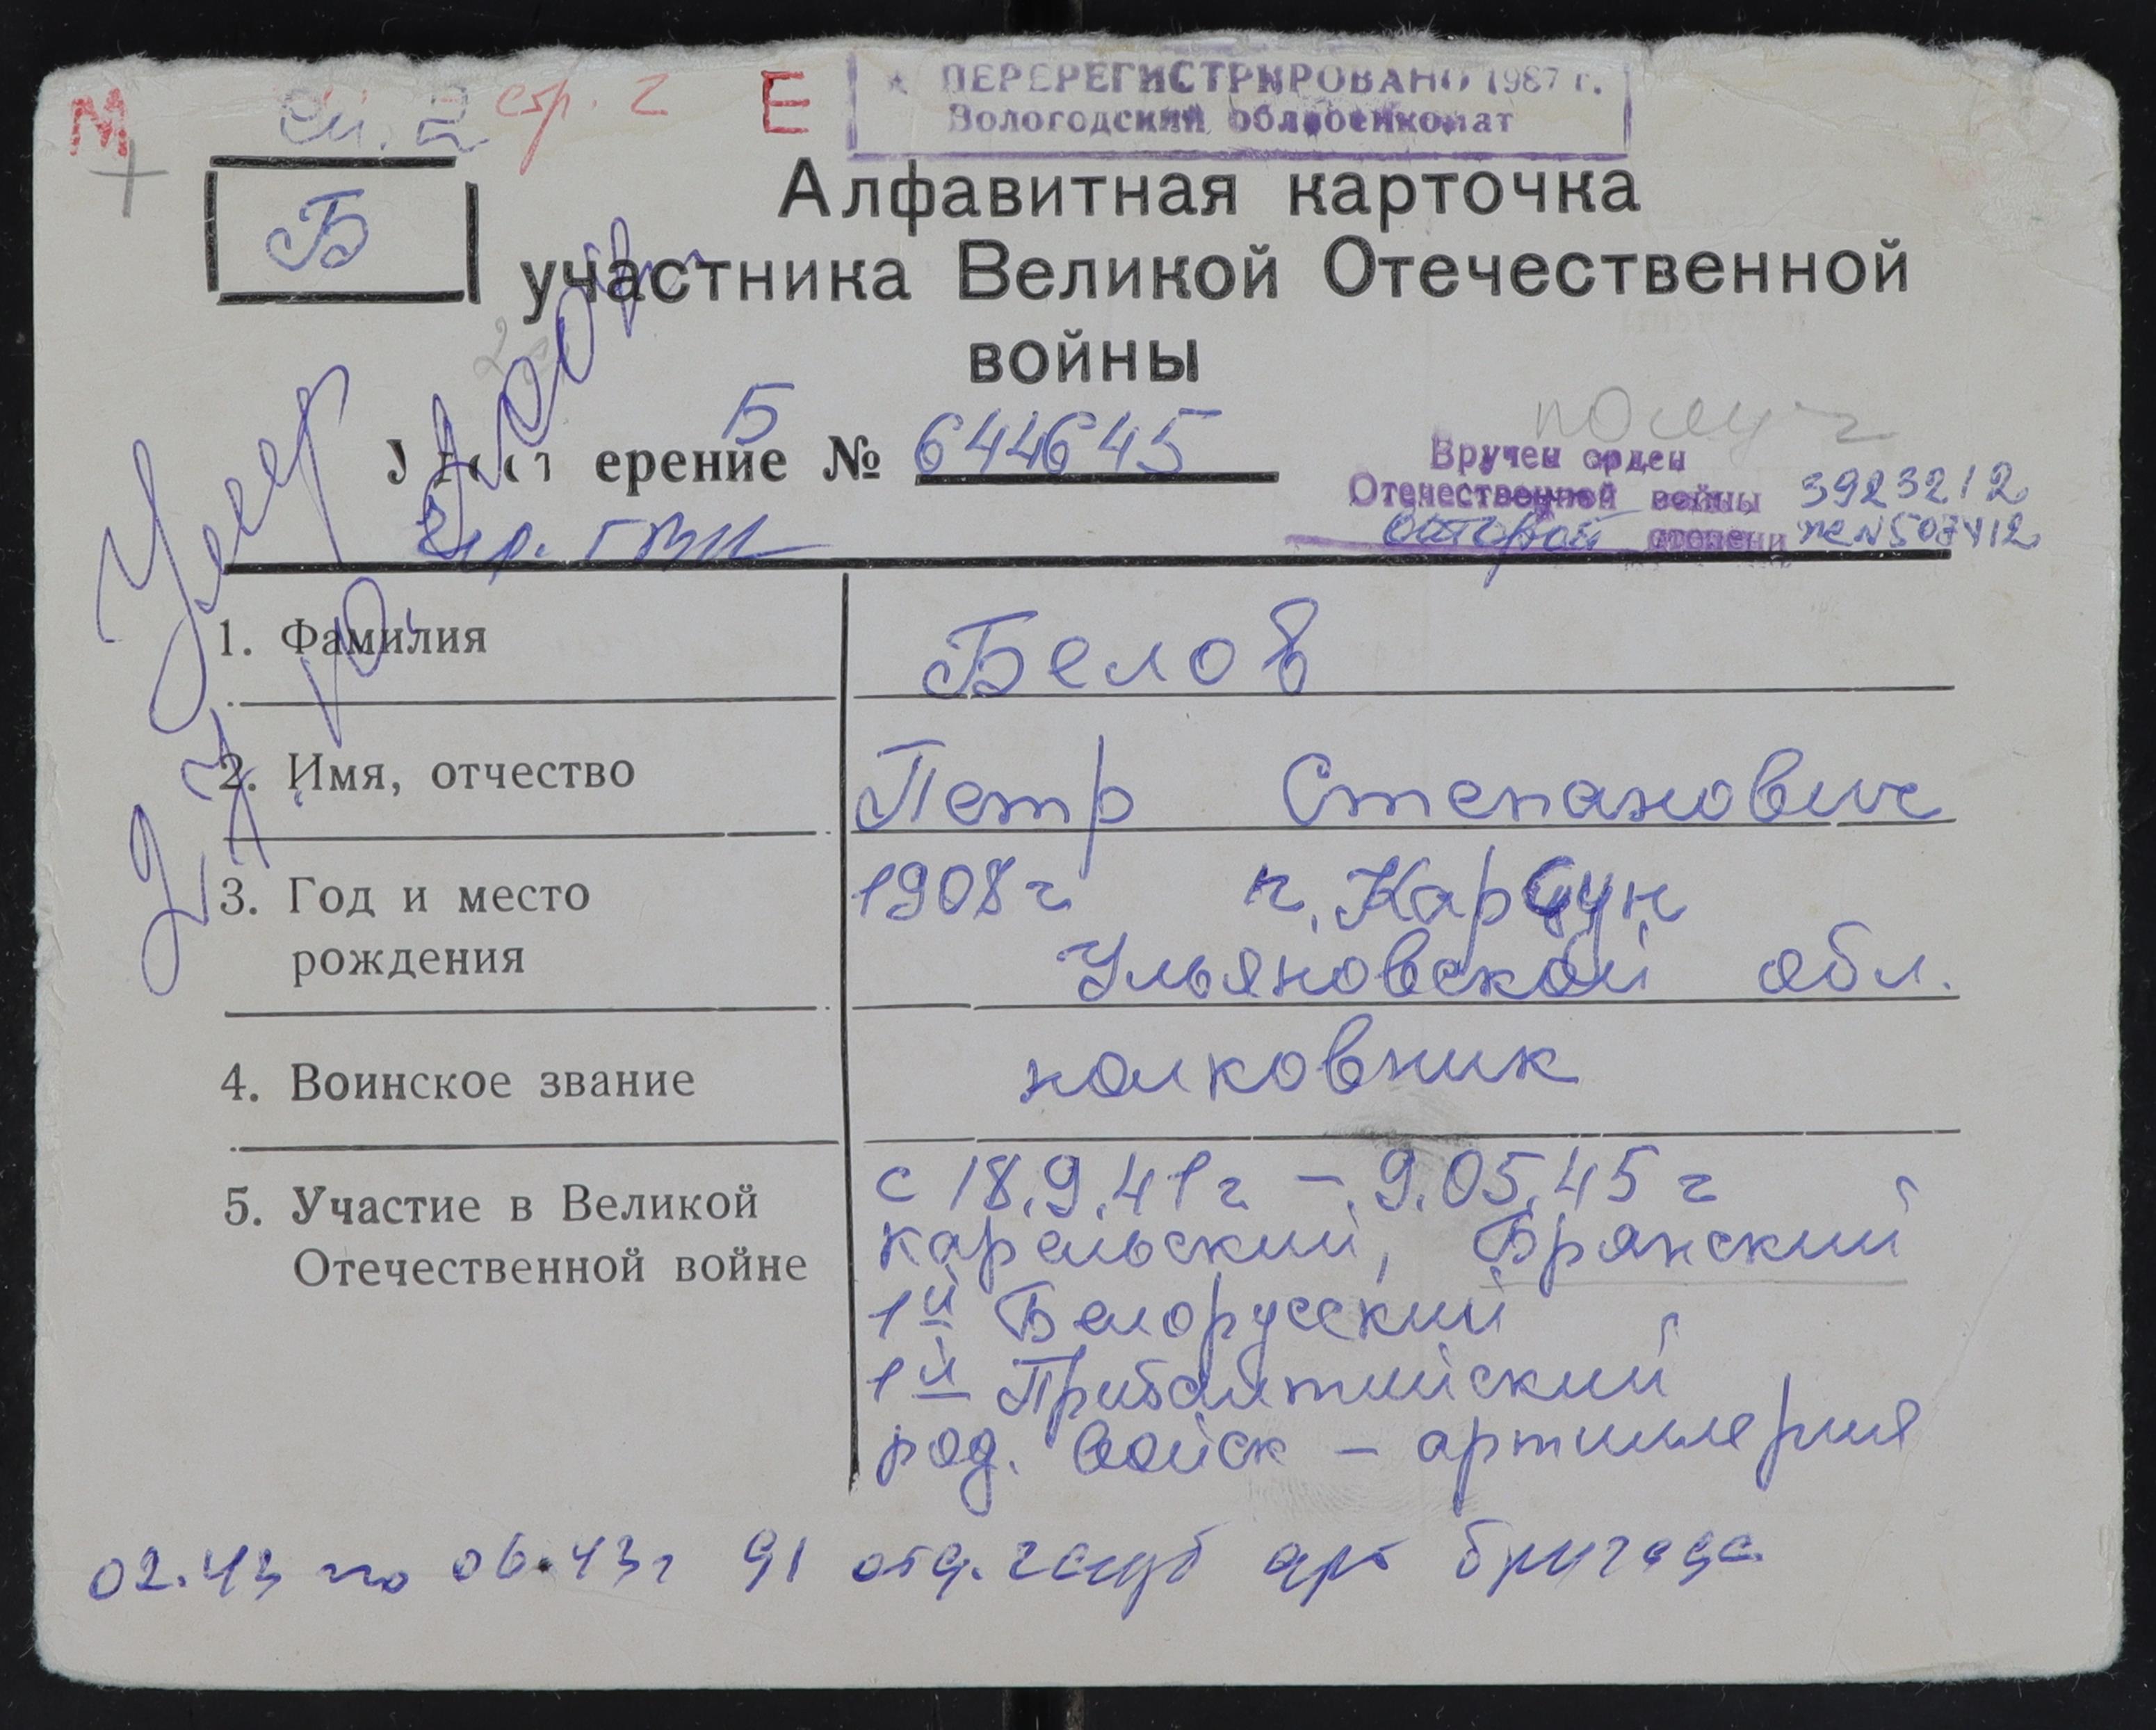 М сп. 2 стр. 2 Е
ПЕРЕРЕГИСТРИРОВАНО 1987 г.
Вологодский облвоенкомат
Б
Алфавитная карточка
участника Великой Отечественной
войны
Б
ерение № 644645
получ
Вручен орден
Отечественной войны 3923212
второй степени №507412
ГВК
Умер
1. Фамилия Белов
2. Имя, отчество Петр Степанович
3. Год и место 1908 г г. Карсун
рождения Ульяновской обл.
4. Воинское звание полковник
5. Участие в Великой с 18.9.41г – 9.05.45 г
Отечественной войне карельский, Брянский
1й Белорусский
1й Прибалтийский
род. войск – артиллерия
02.43 по 06.43г 91 отд. гауб арт бригада